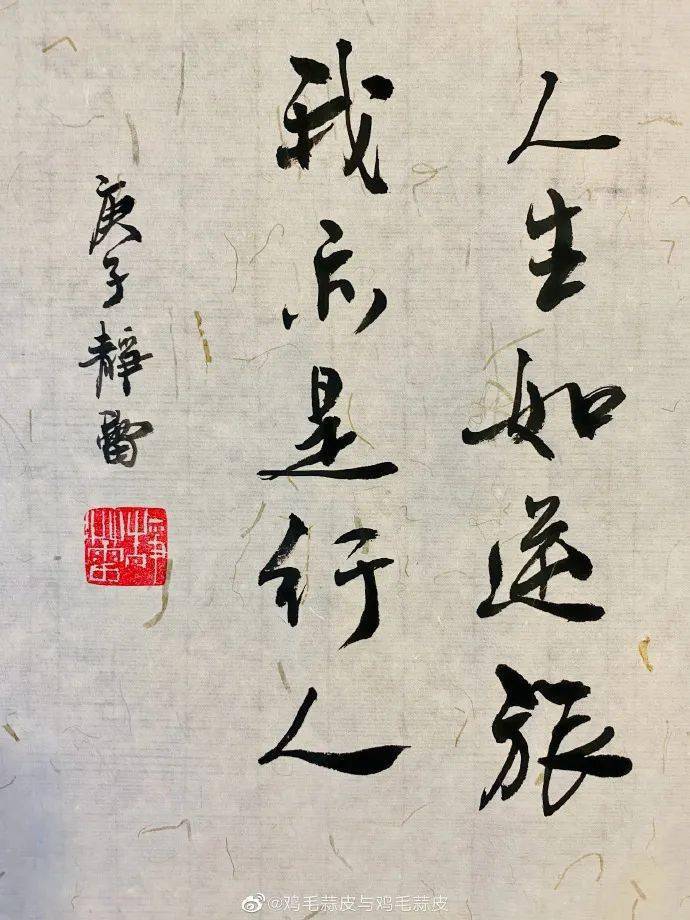 人生如逆旅
我亦是行人
庚子靜雷
@鸡毛蒜皮与鸡毛蒜皮